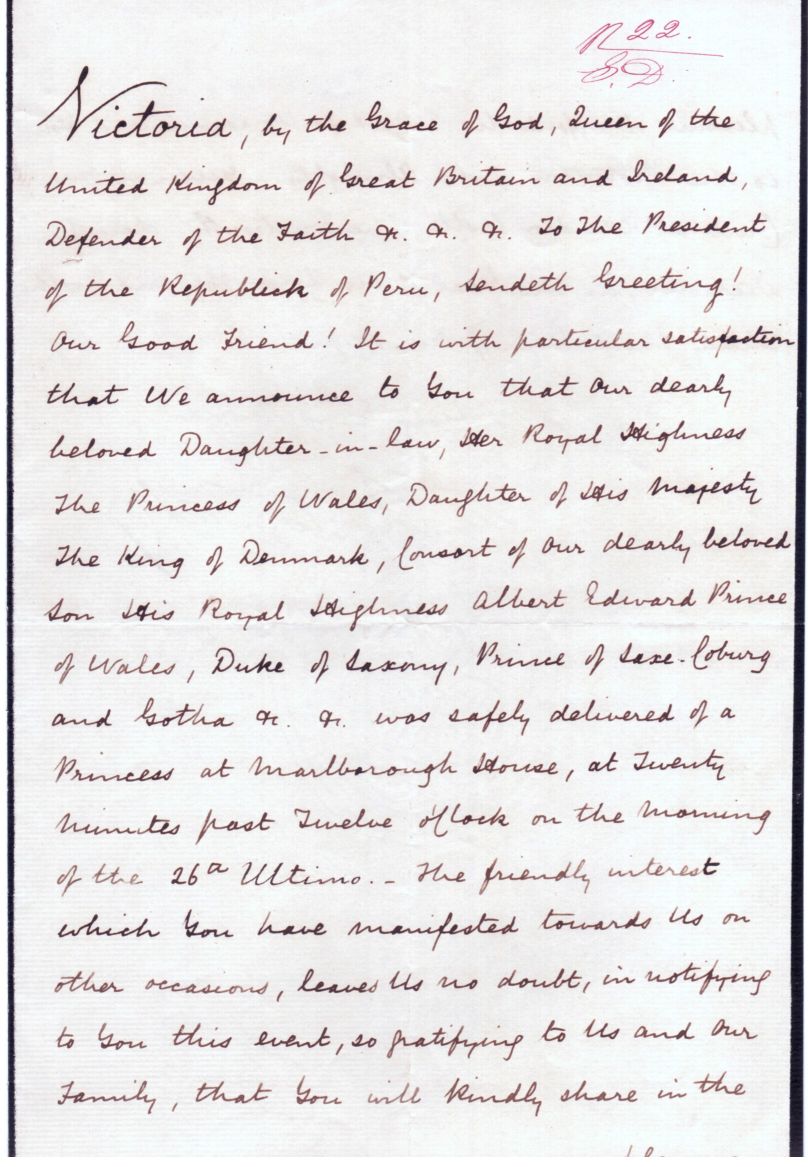 R 22.
S.D.
Victoria, by the Grace of God, Queen of the
United Kingdom of Great Britain and Ireland,
Defender of the Faith &c. &c. &c. To The President
of the Republick of Peru, Sendeth Greeting!
Our Good Friend! It is with particular satisfaction
that We announce to You that Our dearly
beloved Daughter-in-law, Her Royal Highness
The Princess of Wales, Daughter of His Majesty
The King of Denmark, Consort of Our dearly beloved
Son His Royal Highness Albert Edward Prince
of Wales, Duke of Saxony, Prince of Saxe-Coburg
and Gotha &c. &c. was safely delivered of a
Princess at Marlborough House, at Twenty
Minutes past Twelve o'Clock on the Morning
of the 26th Ultimo. - The friendly interest
which You have manifested towards Us on
other occasions, leaves Us no doubt, in notifying
to You this event, so gratifying to Us and Our
Family, that You will kindly share in the